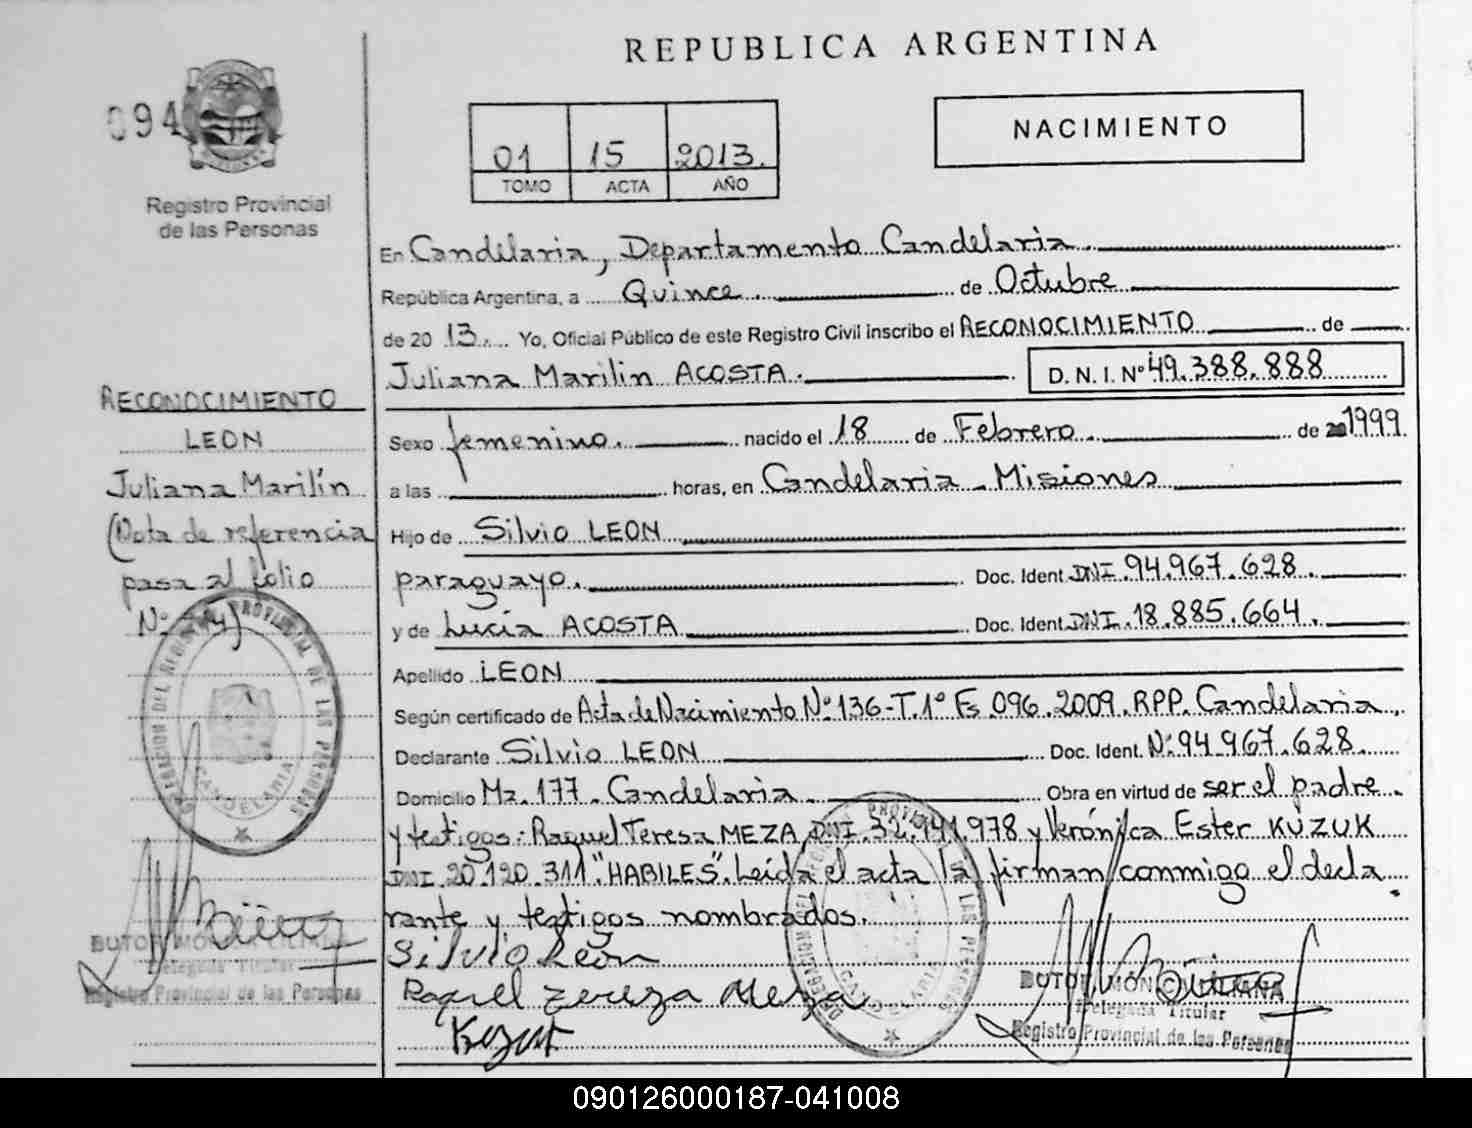 REPUBLICA ARGENTINA
094
Registro Provincial
de las Personas
01 15 2013.
TOMO ACTA AÑO
NACIMIENTO
En Candelaria, Departamento Candelaria
República Argentina, a Quince de Octubre
de 20 13. Yo, Oficial Público de este Registro Civil inscribo el RECONOCIMIENTO de
Juliana Marilin ACOSTA. D. N. I. Nº 49.388.888
Sexo femenino. nacido el 18 de Febrero de 1999
a las horas, en Candelaria - Misiones
Hijo de Silvio LEON
paraguayo. Doc. Ident. DNI. 94.967.628.
y de Lucia ACOSTA Doc. Ident. DNI. 18.885.664.
Apellido LEON
Según certificado de Acta de Nacimiento Nº 136-T.1º Fs. 096. 2009. RPP. Candelaria.
Declarante Silvio LEON Doc. Ident. Nº 94.967.628.
Domicilio Mz. 177. Candelaria. Obra en virtud de ser el padre.
y testigos: Raquel Teresa MEZA DNI. 941.978 y Verónica Ester KUZUK
DNI. 20.120.311. "HABILES". Leída el acta la firman conmigo el decla
rante y testigos nombrados.
Silvio León
Raquel Tereza Meza
Kozut
RECONOCIMIENTO
LEON
Juliana Marilín
(Nota de referencia
pasa al folio
Nº
DELEGACION DEL REGISTRO PROVINCIAL DE LAS PERSONAS
CANDELARIA
BUTOR MONICA LILIANA
Delegada Titular
Registro Provincial de las Personas
DELEGACION DEL REGISTRO PROVINCIAL DE LAS PERSONAS
CANDELARIA
BUTOR MONICA LILIANA
Delegada Titular
Registro Provincial de las Personas
090126000187-041008